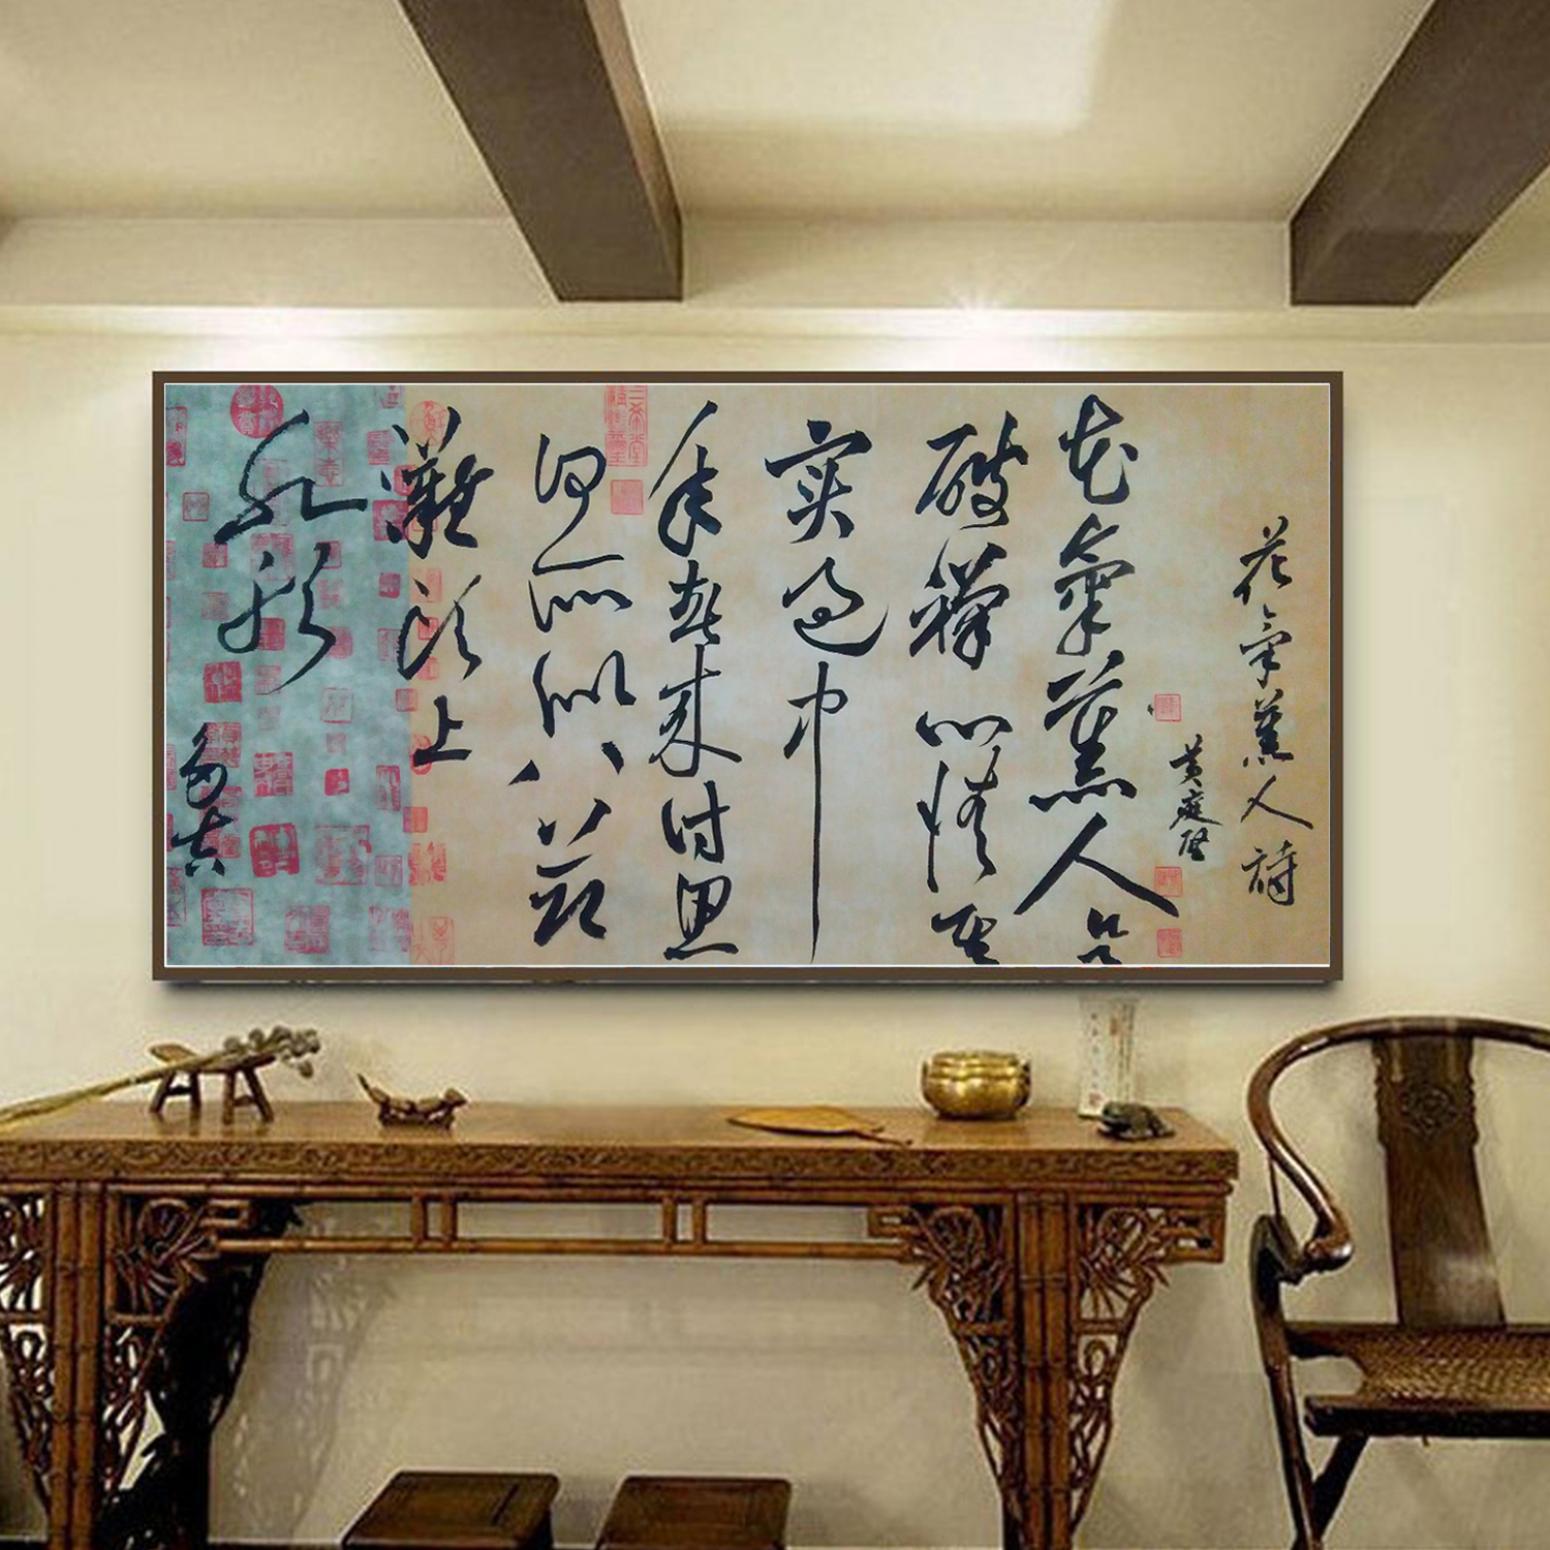 花氣薰人詩
黃庭堅
花氣薰人欲
破禪心情其
實過中
年春來詩思
何所似八節
灘頭上
水船
三希堂精鑑璽